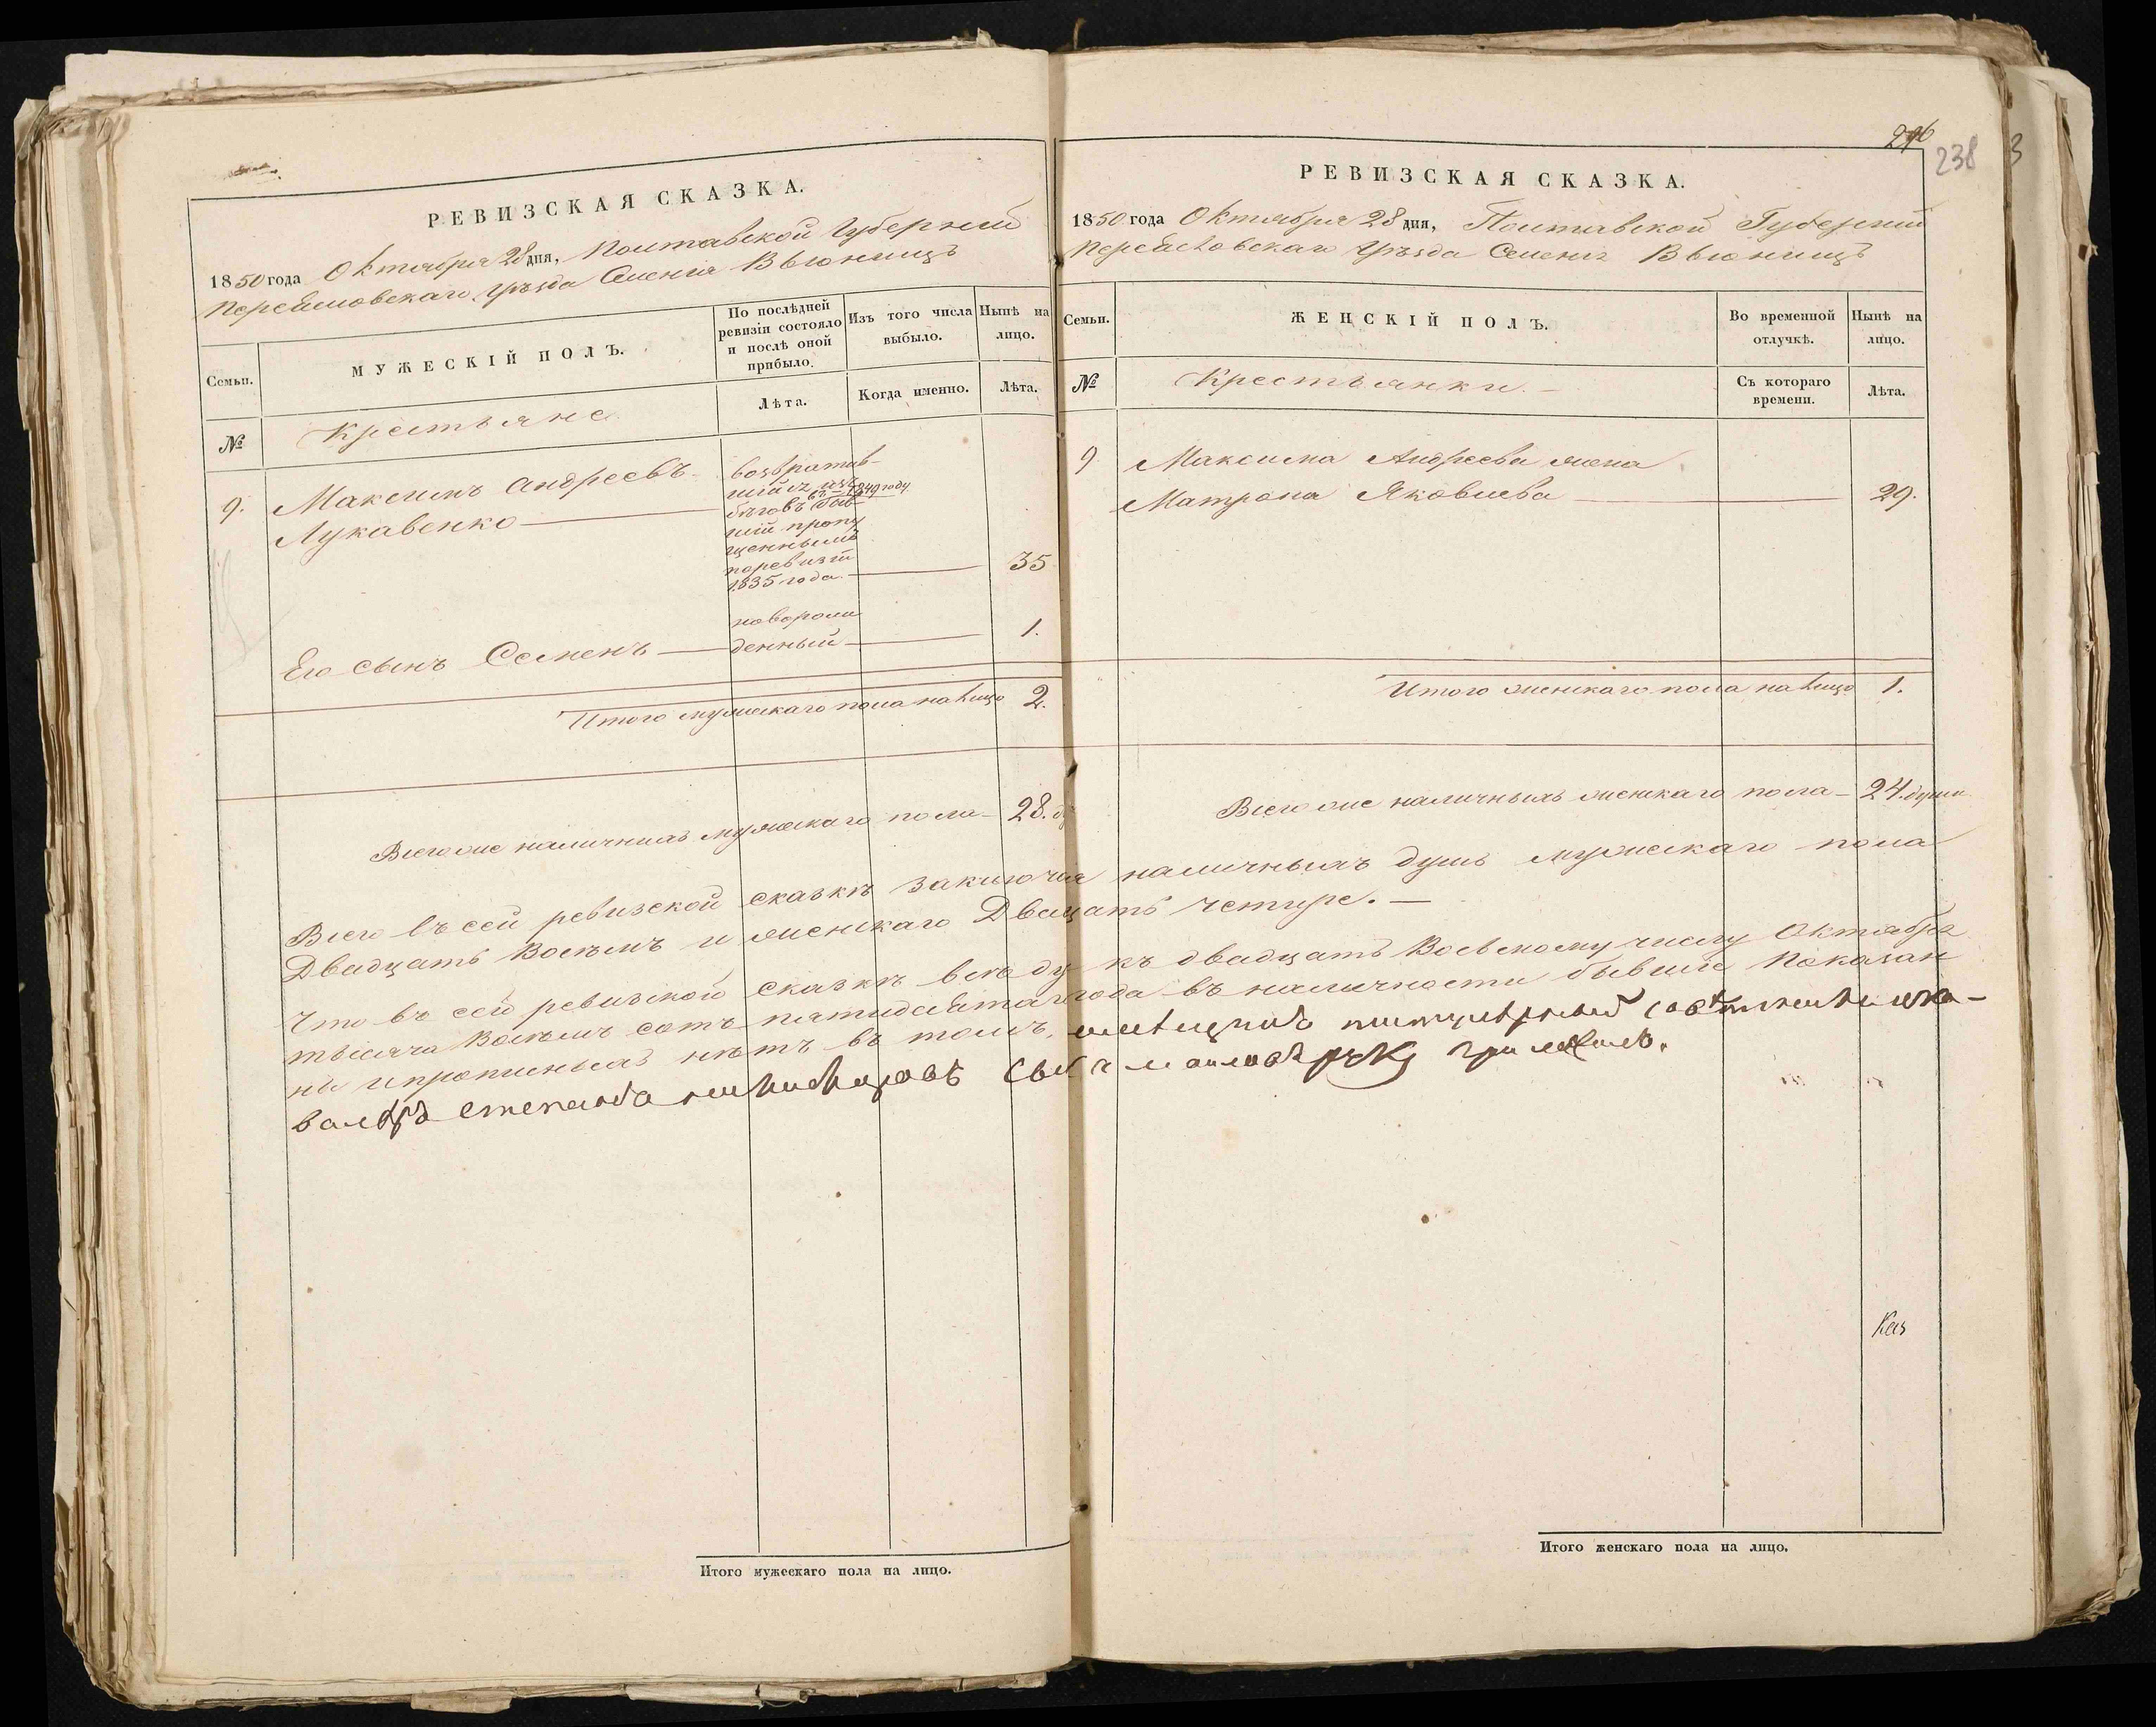 РЕВИЗСКАЯ СКАЗКА.
1850 года Октября 28 дня, Полтавской Губерніи
Переяславскаго уѣзда Селенія Вьюнищъ
Семьи.
МУЖЕСКІЙ ПОЛЪ.
По послѣдней
ревизіи состояло
и послѣ оной
прибыло.
Изъ того числа
выбыло.
Нынѣ на
лицо.
№
Крестьяне
Лѣта.
Когда именно.
Лѣта.
9. Максимъ Андреевъ
Лукавенко
возвратив-
шійся изъ
бѣговъ въ 1849 году быв-
шій пропу
щеннымъ
поревизіи
1835 года. 35
Его сынъ Семенъ
новорож
денный 1.
Итого мужескаго пола налицо 2.
Всего же наличныхъ мужескаго пола 28.
РЕВИЗСКАЯ СКАЗКА.
296
238
3
1850 года Октября 28 дня, Полтавской Губерніи
Переясловскаго уѣзда Селенія Вьюнищъ
Семьи.
ЖЕНСКІЙ ПОЛЪ.
Во временной
отлучкѣ.
Нынѣ на
лицо.
№
Крестьянки
Съ котораго
времени.
Лѣта.
9 Максима Андреева жена
Матрона Яковлева 29.
Итого женскаго пола налицо 1.
Всего же наличныхъ женскаго пола 24. души
Всего въ сей ревизской сказкѣ заключая наличныхъ душъ мужескаго пола
Двадцать Восемъ и женскаго Двацать четыре.
Что въ сей ревизской сказкѣ всѣ къ двадцать Восьмому числу Октября
тысяча Восемь сотъ пятидесятаго года въ наличности бывшіе Показан
ны и прописныхъ нѣтъ въ томъ,
руку приложилъ.
Каз
Итого мужескаго пола на лицо.
Итого женскаго пола на лицо.